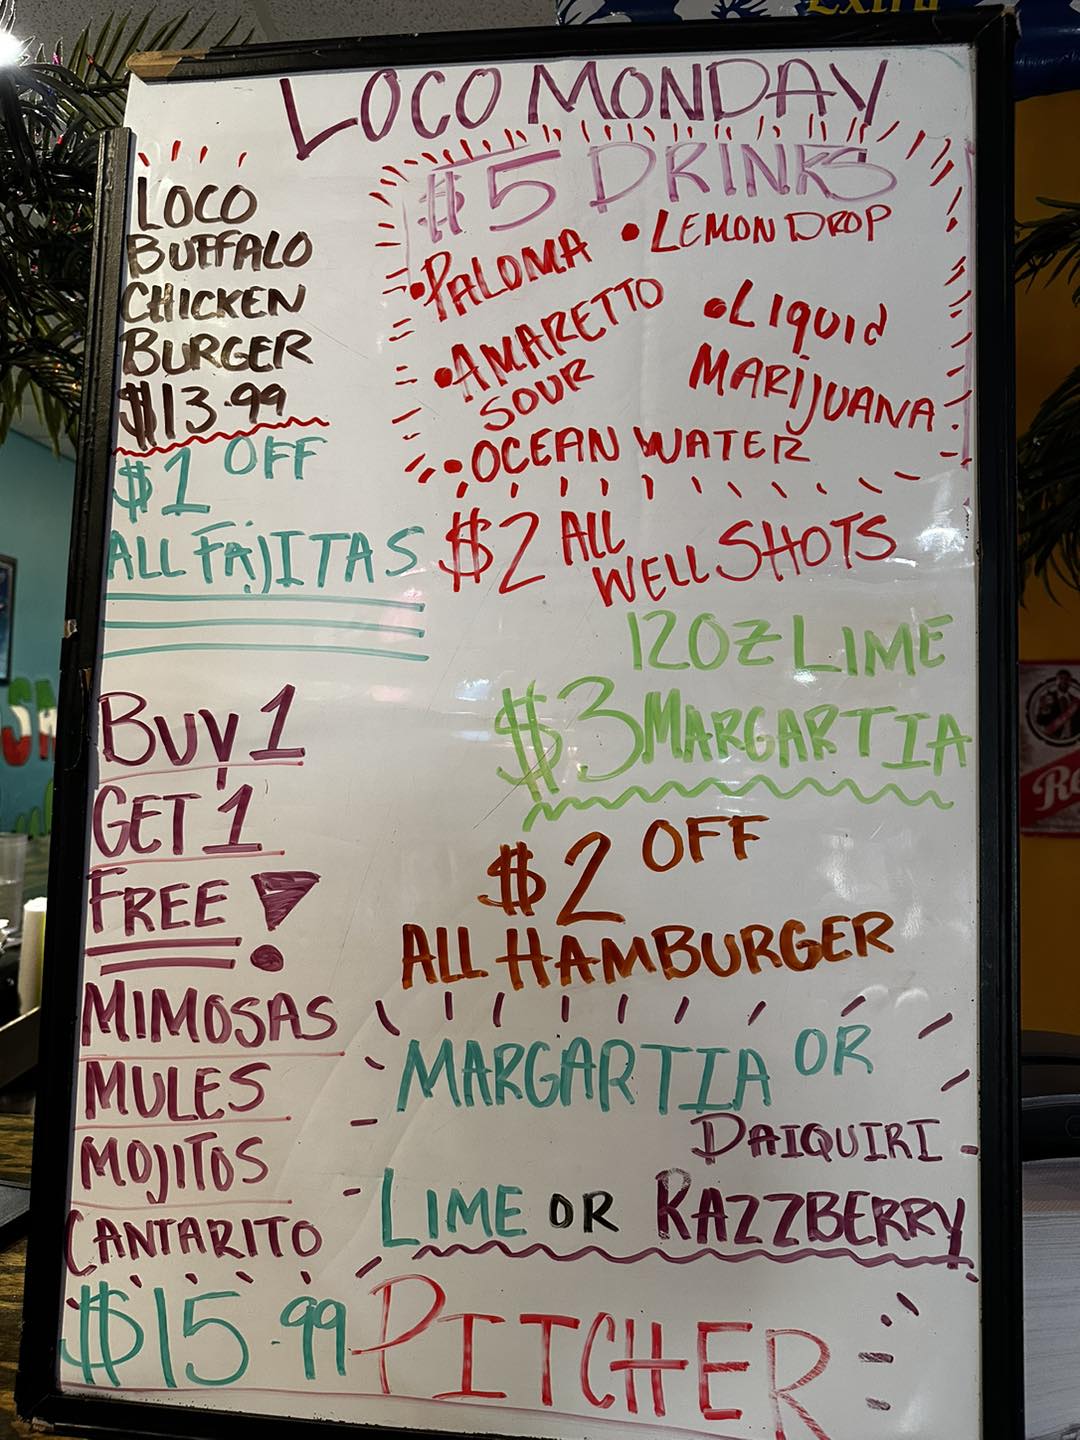 Extra
LOCO MONDAY
LOCO
BUFFALO
CHICKEN
BURGER
$13.99
$1 OFF
ALL FAJITAS
$5 DRINKS
• PALOMA
• LEMON DROP
• AMARETTO
SOUR
• LIQUID
MARIJUANA
• OCEAN WATER
$2 ALL
WELL SHOTS
12OZ LIME
$3 MARGARTIA
$2 OFF
ALL HAMBURGER
BUY 1
GET 1
FREE!
MIMOSAS
MULES
MOJITOS
CANTARITO
MARGARTIA OR
DAIQUIRI
LIME OR RAZZBERRY
$15.99 PITCHER